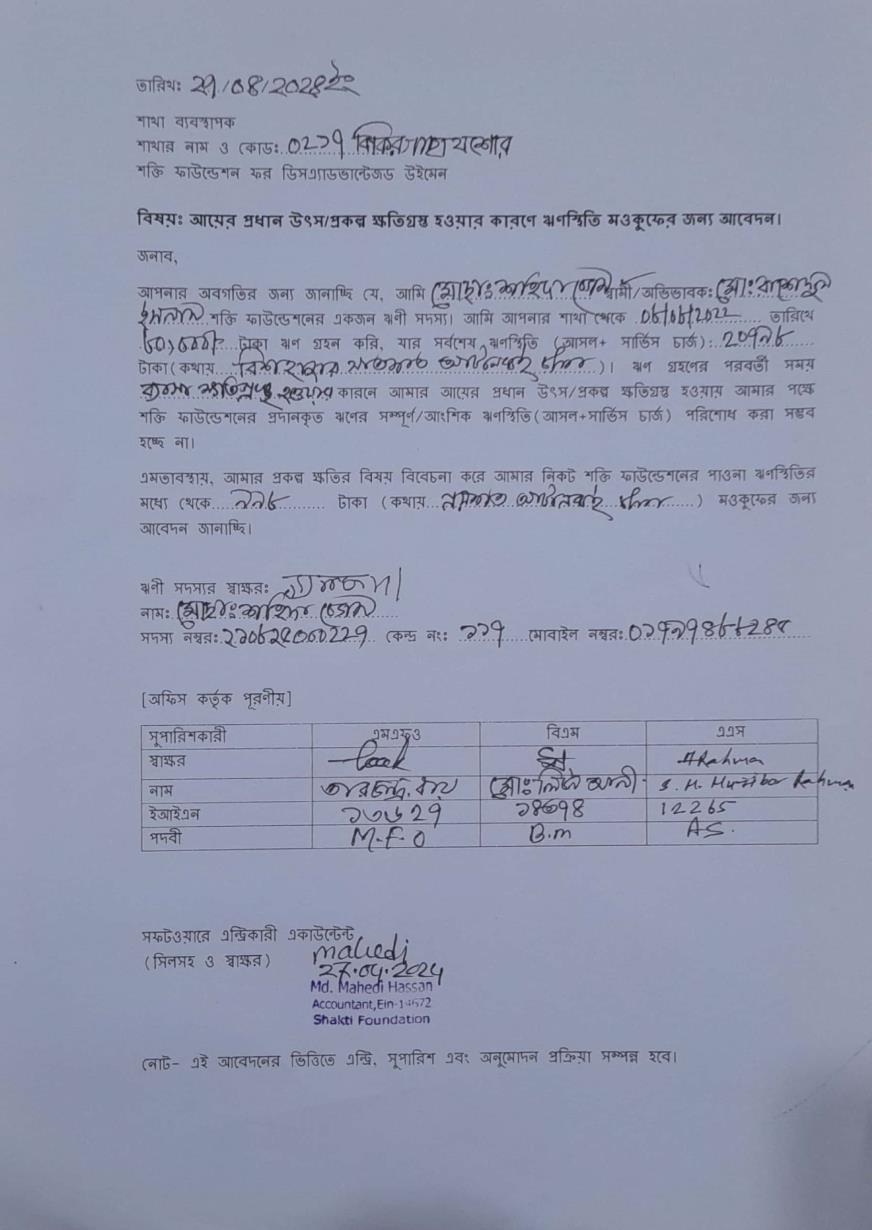 তারিখঃ ২৭/০৪/২০২৪ইং
শাখা ব্যবস্থাপক
শাখার নাম ও কোডঃ ০২১৭ যশোর
শক্তি ফাউন্ডেশন ফর ডিসএ্যাডভান্টেজড উইমেন
বিষয়ঃ আয়ের প্রধান উৎস/প্রকল্প ক্ষতিগ্রস্থ হওয়ার কারণে ঋণস্থিতি মওকুফের জন্য আবেদন।
জনাব,
আপনার অবগতির জন্য জানাচ্ছি যে, আমি মোছাঃ শাহিদা বেগম স্বামী/অভিভাবকঃ মোঃ রাশেদুল
ইসলাম শক্তি ফাউন্ডেশনের একজন ঋণী সদস্য। আমি আপনার শাখা থেকে ০৮/০৮/২০২২ তারিখে
টাকা ঋণ গ্রহন করি, যার সর্বশেষ ঋণস্থিতি (আসল+ সার্ভিস চার্জ): ২০৭৯৮
টাকা (কথায় বিশ হাজার সাতশত আটানব্বই টাকা)। ঋণ গ্রহণের পরবর্তী সময়
ব্যবসা ক্ষতিগ্রস্থ হওয়ার কারনে আমার আয়ের প্রধান উৎস/প্রকল্প ক্ষতিগ্রস্থ হওয়ায় আমার পক্ষে
শক্তি ফাউন্ডেশনের প্রদানকৃত ঋণের সম্পূর্ণ/আংশিক ঋণস্থিতি (আসল+সার্ভিস চার্জ) পরিশোধ করা সম্ভব
হচ্ছে না।
এমতাবস্থায়, আমার প্রকল্প ক্ষতির বিষয় বিবেচনা করে আমার নিকট শক্তি ফাউন্ডেশনের পাওনা ঋণস্থিতির
মধ্যে থেকে ৯৯৮ টাকা (কথায় নয়শত আটানব্বই টাকা) মওকুফের জন্য
আবেদন জানাচ্ছি।
ঋণী সদস্যর স্বাক্ষরঃ
নামঃ মোছাঃ শাহিদা বেগম
সদস্য নম্বরঃ কেন্দ্র নংঃ ১১৭ মোবাইল নম্বরঃ
[অফিস কর্তৃক পূরণীয়]
সুপারিশকারী এমএফও বিএম এএস
স্বাক্ষর ARahman
নাম মোঃ লিটন আলী S. M. Muzibor Rahman
ইআইএন 12265
পদবী M.F.O B.m AS.
সফটওয়্যারে এন্ট্রিকারী একাউন্টেন্ট
(সিলসহ ও স্বাক্ষর) mahedi
27.04.2024
Md. Mahedi Hassan
Accountant, Ein-14572
Shakti Foundation
নোট- এই আবেদনের ভিত্তিতে এন্ট্রি, সুপারিশ এবং অনুমোদন প্রক্রিয়া সম্পন্ন হবে।